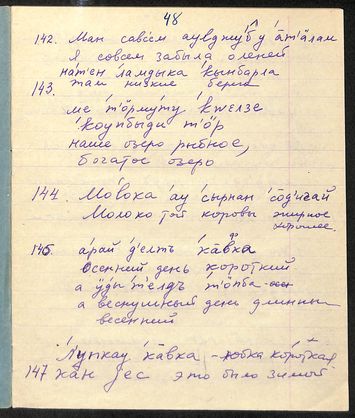 48
142. Ман совсем аувджубу атӓлам
Я совсем забыла оленей
на́тен ламдыка кынбарла
143. там низкие берега
ме́ тӧрму́ту кжелзе
коупбыди тӧр
наше озеро рыбное,
богатое озеро
144. Мо́лока ау сырнан сӧдигай
Молоко той коровы жирное
хорошее
145. а́рай делтъ ха̄вка
Осенний день короткий
а ӱды телдъ тӧпба
а веснушный день длинный
весенний
Лупкау хӓвка - юбка короткая
147 ка̄н ес это было зимой